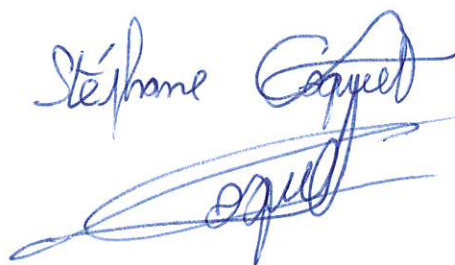 Stéphane Coquet
Coquet